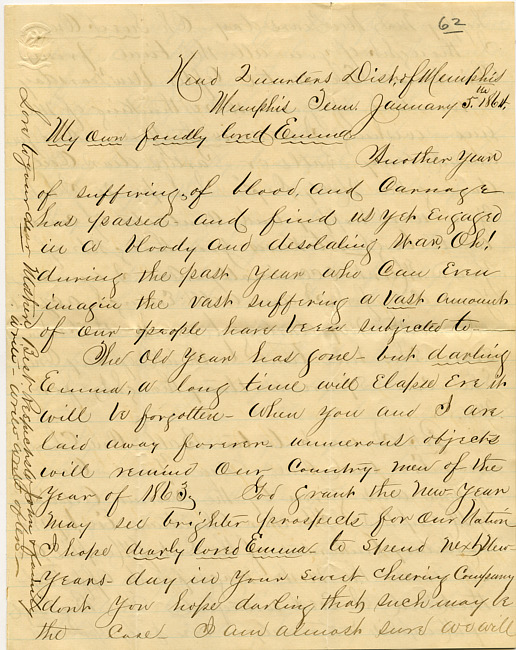 62
Head Quarters Dist. of Memphis
Memphis Tenn January 5th 1864.
My own fondly loved Emma
Another Year
of suffering, of blood, and Carnage
has passed - and find us yet Engaged
in a bloody and desolating War, Oh!
during the past Year who Can Even
imagin the vast suffering a vast amount
of our people have been subjected to -
The old Year has gone - but darling
Emma, a long time will Elapse Ere it
will be forgotten - When You and I are
laid away forever - numerous objects
will remind our Country-men of the
Year of 1863, God grant the New Year
may see brighter prospects for our Nation
I hope dearly loved Emma - to spend next New
Years - day in Your sweet cheering Company
dont You hope darling that such may be
the case I am almost sure we will
Love to your dear Mother Best Respects to John & family
write - write and often -